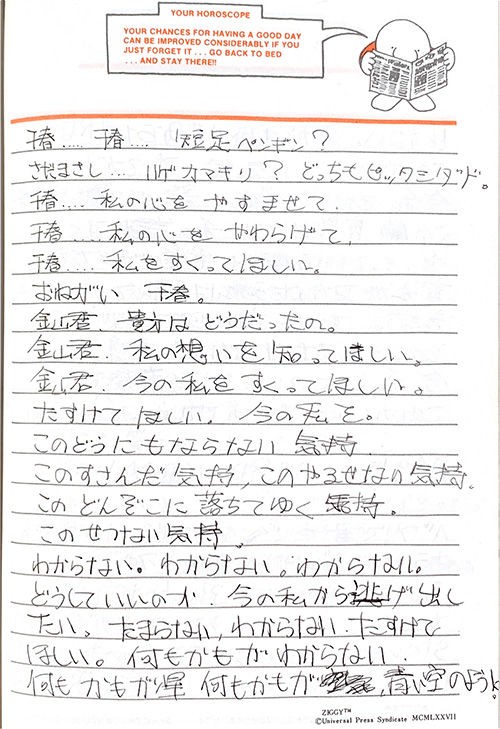 YOUR HOROSCOPE
YOUR CHANCES FOR HAVING A GOOD DAY
CAN BE IMPROVED CONSIDERABLY IF YOU
JUST FORGET IT . . . GO BACK TO BED
. . . AND STAY THERE!!
千春..... 千春.... 短足ペンギン?
さだまさし... ハゲカマキリ? どっちもピッタシダド。
千春..... 私の心を やすませて.
千春..... 私の心を やわらげて,
千春..... 私をすくってほしい。
おねがい 千春。
金山君. 貴方は どうだったの。
金山君. 私の想いを知ってほしい。
金山君. 今の私を すくってほしい。
たすけて ほしい. 今の私を。
このどうにもならない 気持.
このすさんだ 気持, このやるせない 気持.
この どんぞこに落ちてゆく 気持。
このせつない気持.
わからない。わからない。わからない。
どうしていいのか. 今の私から逃げ出し
たい. たまらない, わからない. たすけて
ほしい。何もかもがわからない.
何もかもが 何もかもが , 青い空のように。
ZIGGY™
©Universal Press Syndicate MCMLXXVII